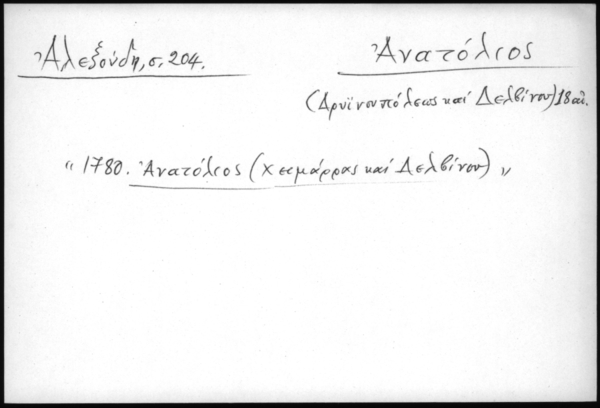 Ἀλεξούδη, σ. 204.
Ἀνατόλιος
(Δρυϊνουπόλεως καί Δελβίνου) 18 αἰ.
“ 1780. Ἀνατόλιος (Χειμάρρας καί Δελβίνου) „